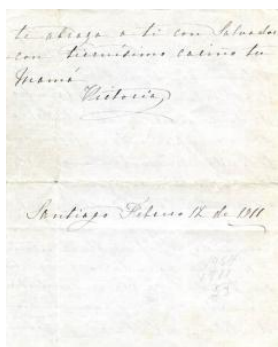 te abraza a ti con Salvador
con ternísimo cariño tu
Mamá
Victoria
Santiago Febrero 12 de 1911
1964
1911
53